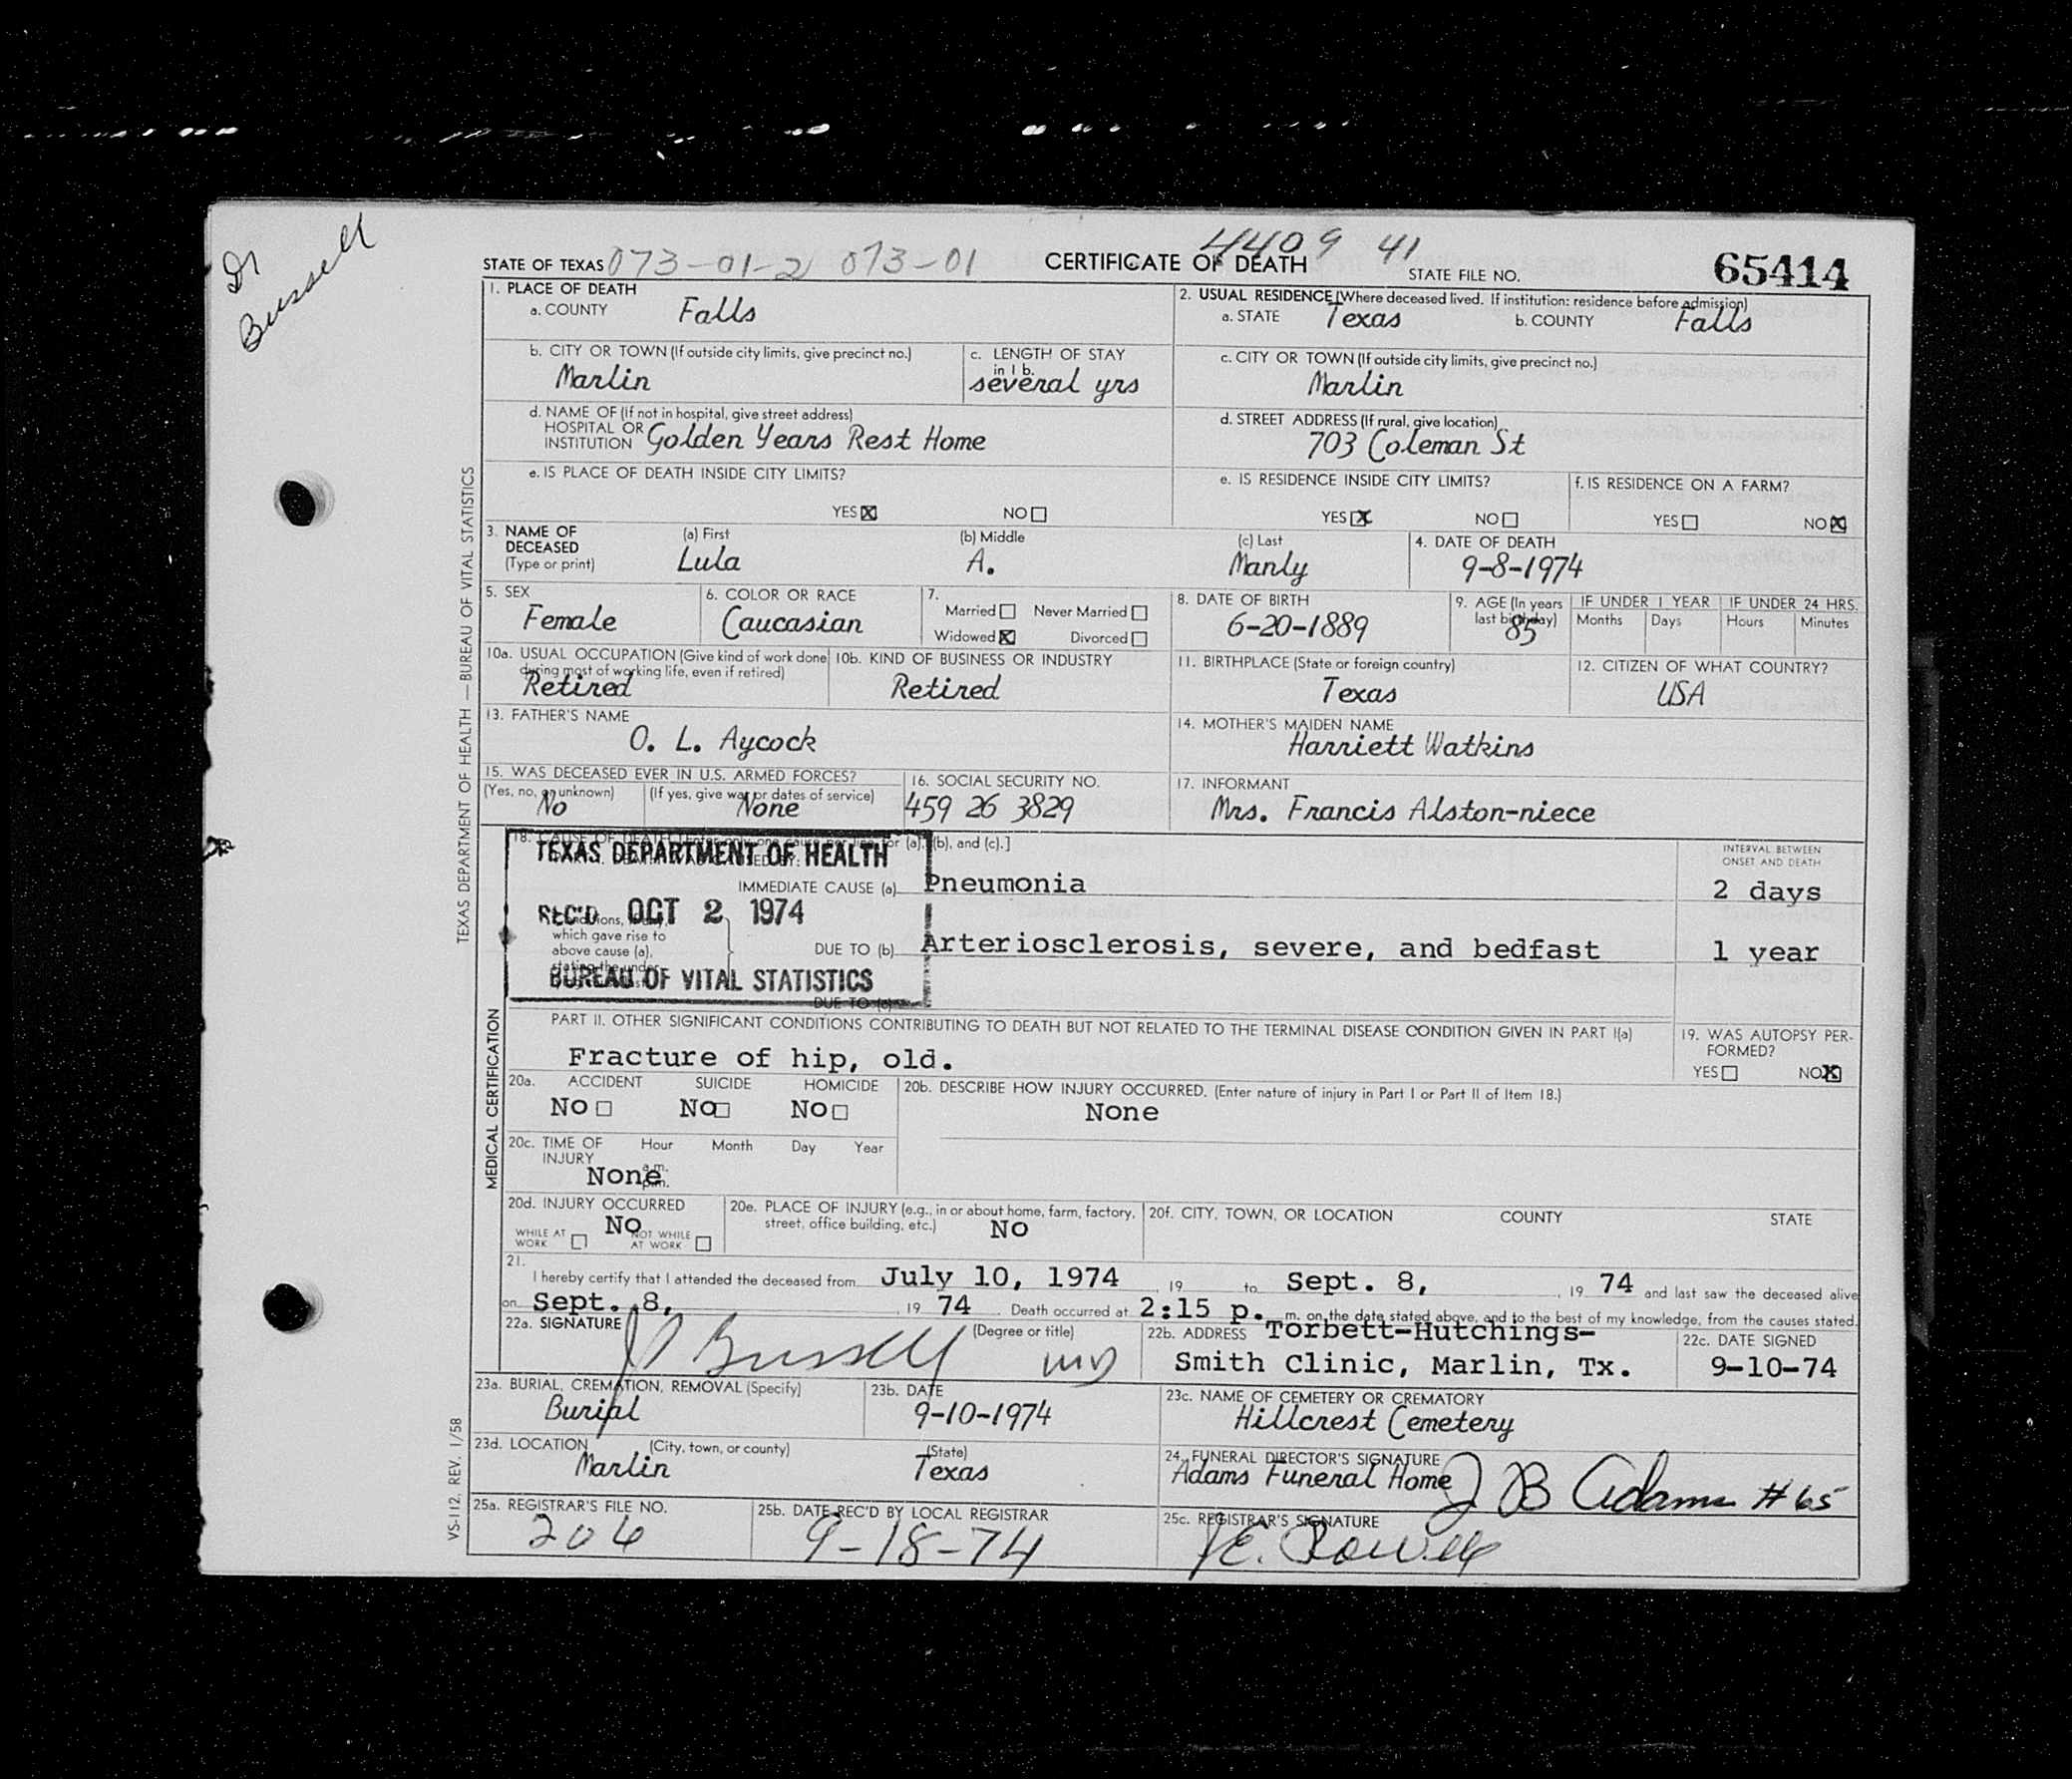 Dr
Bussell
STATE OF TEXAS 073-01-2 073-01 CERTIFICATE OF DEATH 4409 41 STATE FILE NO. 65414
1. PLACE OF DEATH
a. COUNTY Falls
2. USUAL RESIDENCE (Where deceased lived. If institution: residence before admission)
a. STATE Texas b. COUNTY Falls
b. CITY OR TOWN (If outside city limits, give precinct no.)
Marlin
c. LENGTH OF STAY
in 1 b.
several yrs
c. CITY OR TOWN (If outside city limits, give precinct no.)
Marlin
d. NAME OF (If not in hospital, give street address)
HOSPITAL OR
INSTITUTION Golden Years Rest Home
d. STREET ADDRESS (If rural, give location)
703 Coleman St
e. IS PLACE OF DEATH INSIDE CITY LIMITS?
YES ☒ NO ☐
e. IS RESIDENCE INSIDE CITY LIMITS?
YES ☒ NO ☐
f. IS RESIDENCE ON A FARM?
YES ☐ NO ☒
3. NAME OF
DECEASED
(Type or print)
(a) First (b) Middle (c) Last
Lula A. Manly
4. DATE OF DEATH
9-8-1974
5. SEX
Female
6. COLOR OR RACE
Caucasian
7.
Married ☐ Never Married ☐
Widowed ☒ Divorced ☐
8. DATE OF BIRTH
6-20-1889
9. AGE (In years
last birthday)
85
IF UNDER 1 YEAR IF UNDER 24 HRS.
Months Days Hours Minutes
10a. USUAL OCCUPATION (Give kind of work done
during most of working life, even if retired)
Retired
10b. KIND OF BUSINESS OR INDUSTRY
Retired
11. BIRTHPLACE (State or foreign country)
Texas
12. CITIZEN OF WHAT COUNTRY?
USA
13. FATHER'S NAME
O. L. Aycock
14. MOTHER'S MAIDEN NAME
Harriett Watkins
15. WAS DECEASED EVER IN U.S. ARMED FORCES?
(Yes, no, or unknown) (If yes, give war or dates of service)
No None
16. SOCIAL SECURITY NO.
459 26 3829
17. INFORMANT
Mrs. Francis Alston-niece
18. CAUSE OF DEATH (b), and (c).]
TEXAS DEPARTMENT OF HEALTH
REC'D OCT 2 1974
BUREAU OF VITAL STATISTICS
INTERVAL BETWEEN
ONSET AND DEATH
IMMEDIATE CAUSE (a) Pneumonia 2 days
which gave rise to
above cause (a),
DUE TO (b) Arteriosclerosis, severe, and bedfast 1 year
DUE TO (c)
PART II. OTHER SIGNIFICANT CONDITIONS CONTRIBUTING TO DEATH BUT NOT RELATED TO THE TERMINAL DISEASE CONDITION GIVEN IN PART I(a)
Fracture of hip, old.
19. WAS AUTOPSY PER-
FORMED?
YES ☐ NO ☒
20a. ACCIDENT SUICIDE HOMICIDE
No ☐ No ☐ No ☐
20b. DESCRIBE HOW INJURY OCCURRED. (Enter nature of injury in Part I or Part II of Item 18.)
None
20c. TIME OF
INJURY
Hour Month Day Year
None
a.m.
p.m.
20d. INJURY OCCURRED
No
WHILE AT
WORK ☐
NOT WHILE
AT WORK ☐
20e. PLACE OF INJURY (e.g., in or about home, farm, factory,
street, office building, etc.) No
20f. CITY, TOWN, OR LOCATION COUNTY STATE
21.
I hereby certify that I attended the deceased from July 10, 1974, 19 to Sept. 8, 19 74 and last saw the deceased alive
on Sept. 8, 19 74. Death occurred at 2:15 p. m. on the date stated above, and to the best of my knowledge, from the causes stated.
22a. SIGNATURE (Degree or title)
Bussell MD
22b. ADDRESS Torbett-Hutchings-
Smith Clinic, Marlin, Tx.
22c. DATE SIGNED
9-10-74
23a. BURIAL, CREMATION, REMOVAL (Specify)
Burial
23b. DATE
9-10-1974
23c. NAME OF CEMETERY OR CREMATORY
Hillcrest Cemetery
23d. LOCATION (City, town, or county) (State)
Marlin Texas
24. FUNERAL DIRECTOR'S SIGNATURE
Adams Funeral Home J B Adams #65
25a. REGISTRAR'S FILE NO.
206
25b. DATE REC'D BY LOCAL REGISTRAR
9-18-74
25c. REGISTRAR'S SIGNATURE
TEXAS DEPARTMENT OF HEALTH — BUREAU OF VITAL STATISTICS
MEDICAL CERTIFICATION
VS-112, REV. 1/58